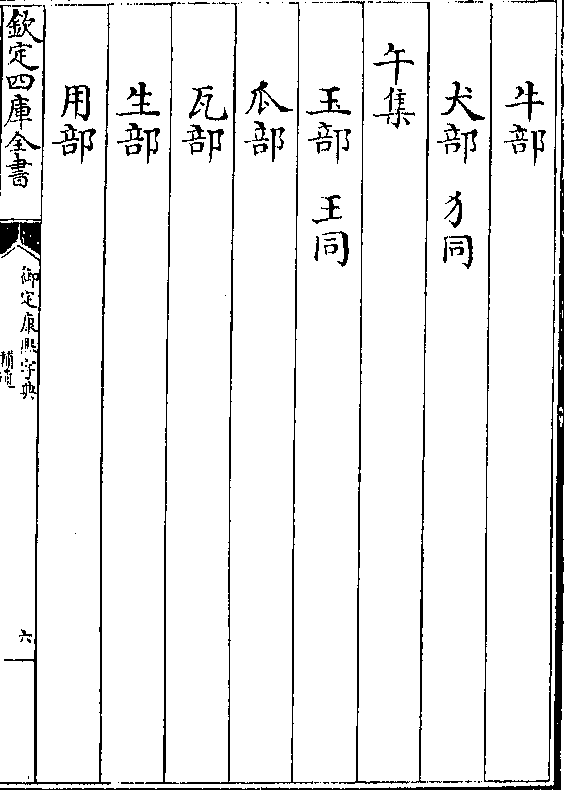 牛部
犬部 犭同
午集
玉部 王同
瓜部
瓦部
生部
用部
欽定四庫全書
御定康熙字典
補遺
六